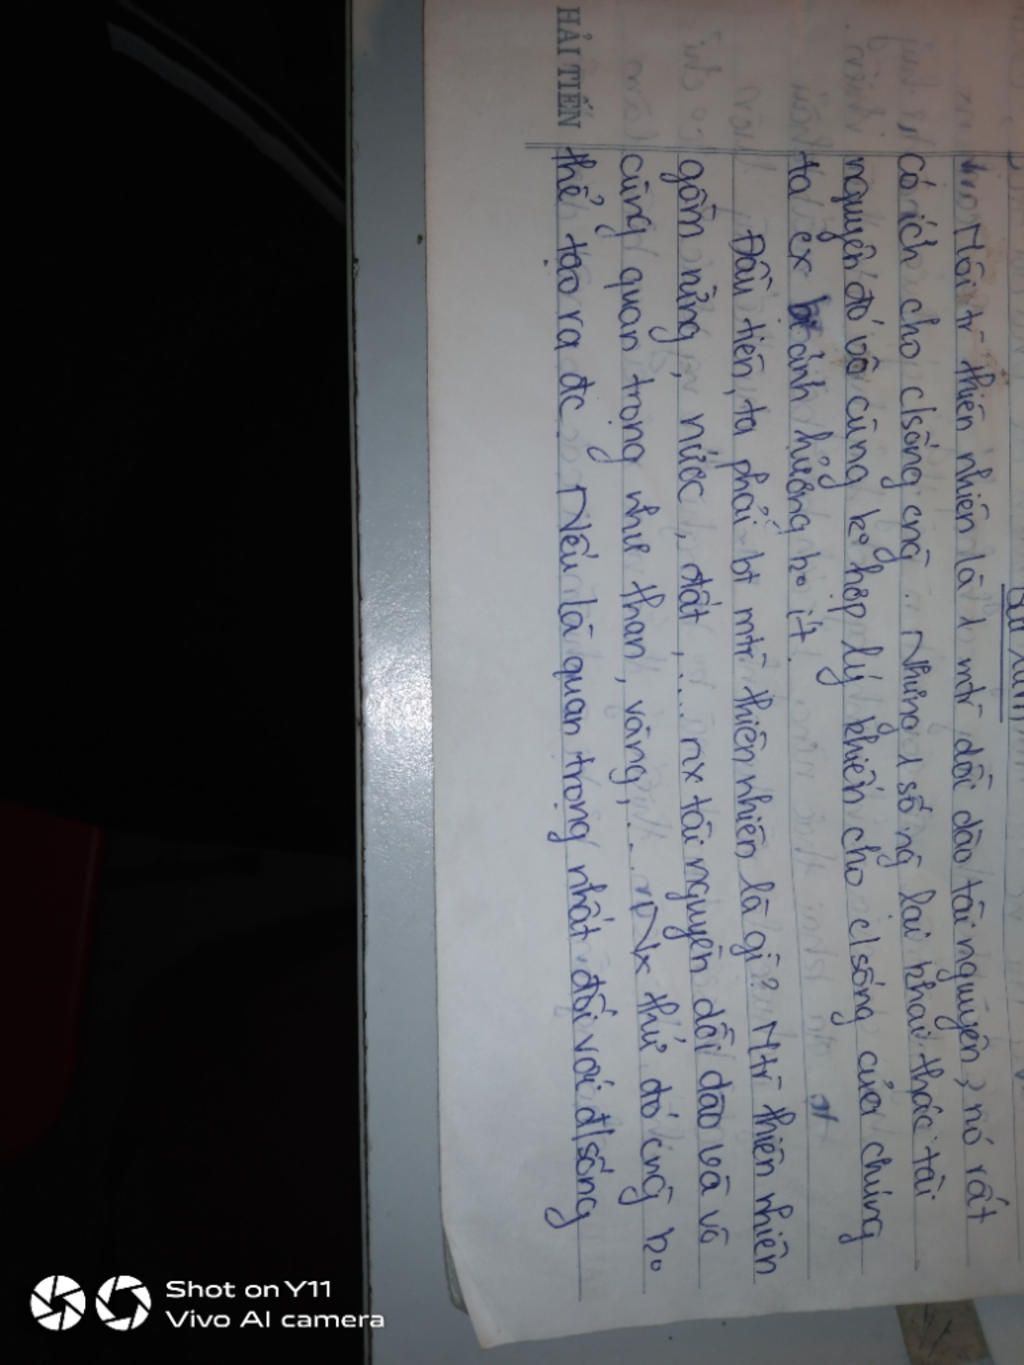 Bài làm
Môi tr̀ thiên nhiên là 1 mtr̀ dồi dào tài nguyên, nó rất
có ích cho c/sống cng̀. Nhưng 1 số ng̀ lại khai thác tài
nguyên đó vô cùng ko hợp lý khiến cho c/sống của chúng
ta cx ảnh hưởng ko ít.
Đầu tiên, ta phải bt mtr̀ thiên nhiên là gì? Mtr̀ thiên nhiên
gồm rừng, nước, đất,... nx tài nguyên dồi dào và vô
cùng quan trọng như than, vàng,... Nx thứ đó cng̀ ko
thể tạo ra đc. Nếu là quan trọng nhất đối với đ/sống
HẢI TIẾN
Shot on Y11
Vivo AI camera